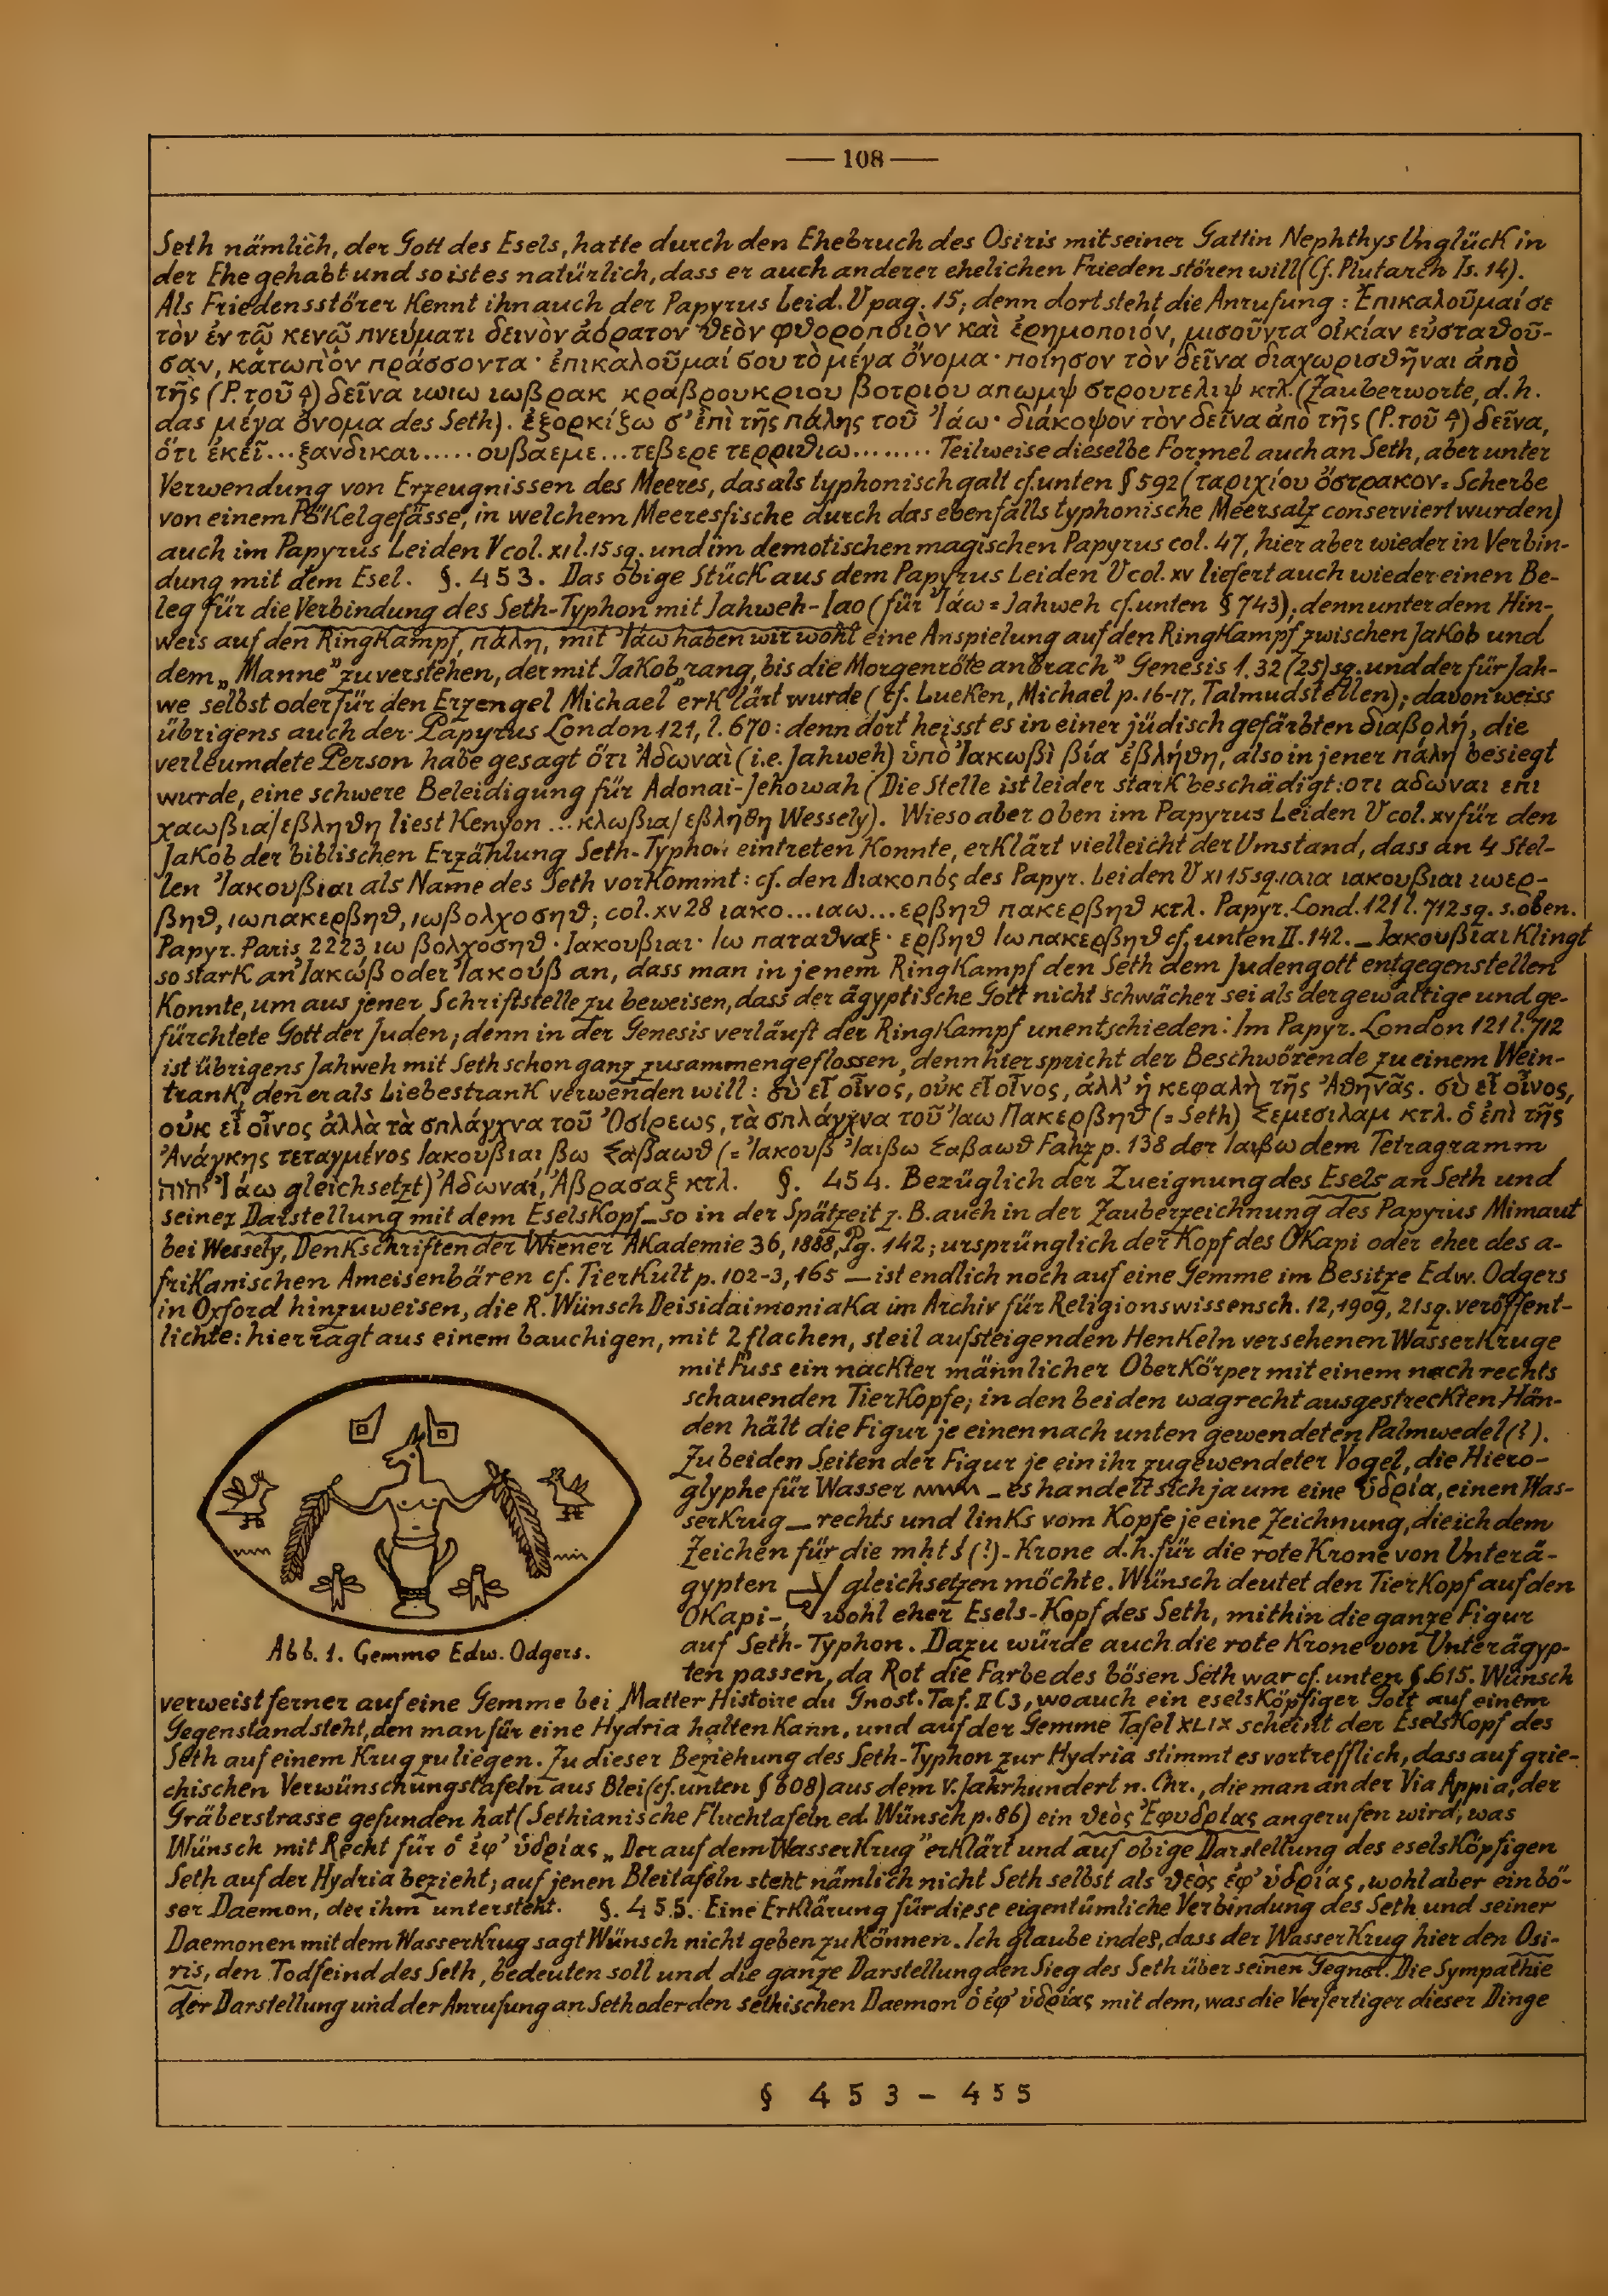 — 108 —
Seth nämlich, der Gott des Esels, hatte durch den Ehebruch des Osiris mit seiner Gattin Nephthys Unglück in
der Ehe gehabt und so ist es natürlich, dass er auch anderer ehelichen Frieden stören will (Cf. Plutarch Is. 14).
Als Friedensstörer kennt ihn auch der Papyrus Leid. V pag. 15; denn dort steht die Anrufung: Ἐπικαλοῦμαί σε
τὸν ἐν τῶ κενῶ πνεύματι δεινὸν ἀόρατον θεὸν φθοροποιὸν καὶ ἐρημοποιόν, μισοῦντα οἰκίαν εὐσταθοῦ-
σαν, κἀτωπὸν πράσσοντα· ἐπικαλοῦμαί σου τὸ μέγα ὄνομα· ποίησον τὸν δεῖνα διαχωρισθῆναι ἀπὸ
τῆς (P. τοῦ) δεῖνα ιωιω ιωβρακ κράβρουκριου βοτριου απωμψ στρουτελιψ κτλ. (Zauberworte, d.h.
das μέγα ὄνομα des Seth). ἐξορκίξω σ' ἐπὶ τῆς πάλης τοῦ Ἰάω· διάκοψον τὸν δεῖνα ἀπὸ τῆς (P. τοῦ) δεῖνα,
ὅτι ἐκεῖ...ξανδικαι.....ουβαεμε...τεβερε τερριθιω........ Teilweise dieselbe Formel auch an Seth, aber unter
Verwendung von Erzeugnissen des Meeres, das als typhonisch galt cf. unten § 592 (ταριχίου ὄστρακον = Scherbe
von einem Pökelgefässe, in welchem Meeresfische durch das ebenfalls typhonische Meersalz conserviert wurden)
auch im Papyrus Leiden V col. XI l. 15 sq. und im demotischen magischen Papyrus col. 47, hier aber wieder in Verbin-
dung mit dem Esel. §. 453. Das obige Stück aus dem Papyrus Leiden V col. XV liefert auch wieder einen Be-
leg für die Verbindung des Seth-Typhon mit Jahweh-Iao (für Ἰάω = Jahweh cf. unten § 743); denn unter dem Hin-
weis auf den Ringkampf, πάλη, mit Ἰάω haben wir wohl eine Anspielung auf den Ringkampf zwischen Jakob und
dem „Manne" zu verstehen, der mit Jakob „rang, bis die Morgenröte anbrach" Genesis 1. 32 (25) sq. und der für Jah-
we selbst oder für den Erzengel Michael erklärt wurde (cf. Lueken, Michael p. 16-17, Talmudstellen); davon weiss
übrigens auch der Papyrus London 121, l. 670: denn dort heisst es in einer jüdisch gefärbten διαβολή, die
verleumdete Person habe gesagt ὅτι Ἀδωναὶ (i.e. Jahweh) ὑπὸ Ἰακωβὶ βίᾳ ἐβλήθη, also in jener πάλη besiegt
wurde, eine schwere Beleidigung für Adonai-Jehowah (Die Stelle ist leider stark beschädigt: οτι αδωναι επι
χαωβια/εβληθη liest Kenyon ... κλωβια/εβληθη Wessely). Wieso aber oben im Papyrus Leiden V col. XV für den
Jakob der biblischen Erzählung Seth-Typhon eintreten konnte, erklärt vielleicht der Umstand, dass an 4 Stel-
len Ἰακουβιαι als Name des Seth vorkommt: cf. den Διακοπός des Papyr. Leiden V XI 15 sq. ιαια ιακουβιαι ιωερ-
βηθ, ιωπακερβηθ, ιωβολχοσηθ; col. XV 28 ιακο...ιαω...ερβηθ πακερβηθ κτλ. Papyr. Lond. 121 l. 712 sq. s. oben.
Papyr. Paris 2223 ιω βολχοσηθ· Ιακουβιαι· Ιω παταθναξ· ερβηθ Ιωπακερβηθ cf. unten II. 142. — Ιακουβιαι klingt
so stark an Ἰακώβ oder Ἰακούβ an, dass man in jenem Ringkampf den Seth dem Judengott entgegenstellen
konnte, um aus jener Schriftstelle zu beweisen, dass der ägyptische Gott nicht schwächer sei als der gewaltige und ge-
fürchtete Gott der Juden; denn in der Genesis verläuft der Ringkampf unentschieden. Im Papyr. London 121 l. 712
ist übrigens Jahweh mit Seth schon ganz zusammengeflossen, denn hier spricht der Beschwörende zu einem Wein-
trank, den er als Liebestrank verwenden will: σὺ εἶ οἶνος, οὐκ εἶ οἶνος, ἀλλ' ἡ κεφαλὴ τῆς Ἀθηνᾶς. σὺ εἶ οἶνος,
οὐκ εἶ οἶνος ἀλλὰ τὰ σπλάγχνα τοῦ Ὀσίρεως, τὰ σπλάγχνα τοῦ Ἰαω Πακερβηθ (= Seth) Σεμεσιλαμ κτλ. ὁ ἐπὶ τῆς
Ἀνάγκης τεταγμένος Ιακουβιαι βω Σαβαωθ (= Ἰακουβ Ἰαιβω Σαβαωθ Fahz p. 138 der Ἰαιβω dem Tetragramm
יהוה Ἰάω gleichsetzt) Ἀδωναί, Ἀβρασαξ κτλ. §. 454. Bezüglich der Zueignung des Esels an Seth und
seiner Darstellung mit dem Eselskopf — so in der Spätzeit z. B. auch in der Zauberzeichnung des Papyrus Mimaut
bei Wessely, Denkschriften der Wiener Akademie 36, 1888, Pg. 142; ursprünglich der Kopf des Okapi oder eher des a-
frikanischen Ameisenbären cf. Tierkult p. 102-3, 165 — ist endlich noch auf eine Gemme im Besitze Edw. Odgers
in Oxford hinzuweisen, die R. Wünsch Deisidaimoniaka im Archiv für Religionswissensch. 12, 1909, 21 sq. veröffent-
lichte: hier ragt aus einem bauchigen, mit 2 flachen, steil aufsteigenden Henkeln versehenen Wasserkruge
mit Fuss ein nackter männlicher Oberkörper mit einem nach rechts
schauenden Tierkopfe; in den beiden wagrecht ausgestreckten Hän-
den hält die Figur je einen nach unten gewendeten Palmwedel (?).
Zu beiden Seiten der Figur je ein ihr zugewendeter Vogel, die Hiero-
glyphe für Wasser — es handelt sich ja um eine ὑδρία, einen Was-
serkrug — rechts und links vom Kopfe je eine Zeichnung, die ich dem
Zeichen für die mḥt ś (?) - Krone d.h. für die rote Krone von Unterä-
gypten gleichsetzen möchte. Wünsch deutet den Tierkopf auf den
Okapi-, wohl eher Esels-Kopf des Seth, mithin die ganze Figur
auf Seth-Typhon. Dazu würde auch die rote Krone von Unterägyp-
ten passen, da Rot die Farbe des bösen Seth war cf. unten § 615. Wünsch
Abb. 1. Gemme Edw. Odgers.
verweist ferner auf eine Gemme bei Matter Histoire du Gnost. Taf. II C 3, wo auch ein eselsköpfiger Gott auf einem
Gegenstand steht, den man für eine Hydria halten kann, und auf der Gemme Tafel XLIX scheint der Eselskopf des
Seth auf einem Krug zu liegen. Zu dieser Beziehung des Seth-Typhon zur Hydria stimmt es vortrefflich, dass auf grie-
chischen Verwünschungstafeln aus Blei (cf. unten § 808) aus dem V. Jahrhundert n. Chr., die man an der Via Appia, der
Gräberstrasse gefunden hat (Sethianische Fluchtafeln ed. Wünsch p. 86) ein θεὸς Ἐφυδρίας angerufen wird, was
Wünsch mit Recht für ὁ ἐφ' ὑδρίας „Der auf dem Wasserkrug" erklärt und auf obige Darstellung des eselsköpfigen
Seth auf der Hydria bezieht; auf jenen Bleitafeln steht nämlich nicht Seth selbst als θεὸς ἐφ' ὑδρίας, wohl aber ein bö-
ser Daemon, der ihm untersteht. §. 455. Eine Erklärung für diese eigentümliche Verbindung des Seth und seiner
Daemonen mit dem Wasserkrug sagt Wünsch nicht geben zu können. Ich glaube indes, dass der Wasserkrug hier den Osi-
ris, den Todfeind des Seth, bedeuten soll und die ganze Darstellung den Sieg des Seth über seinen Gegner. Die Sympathie
der Darstellung und der Anrufung an Seth oder den sethischen Daemon ὁ ἐφ' ὑδρίας mit dem, was die Verfertiger dieser Dinge
§ 453 - 455